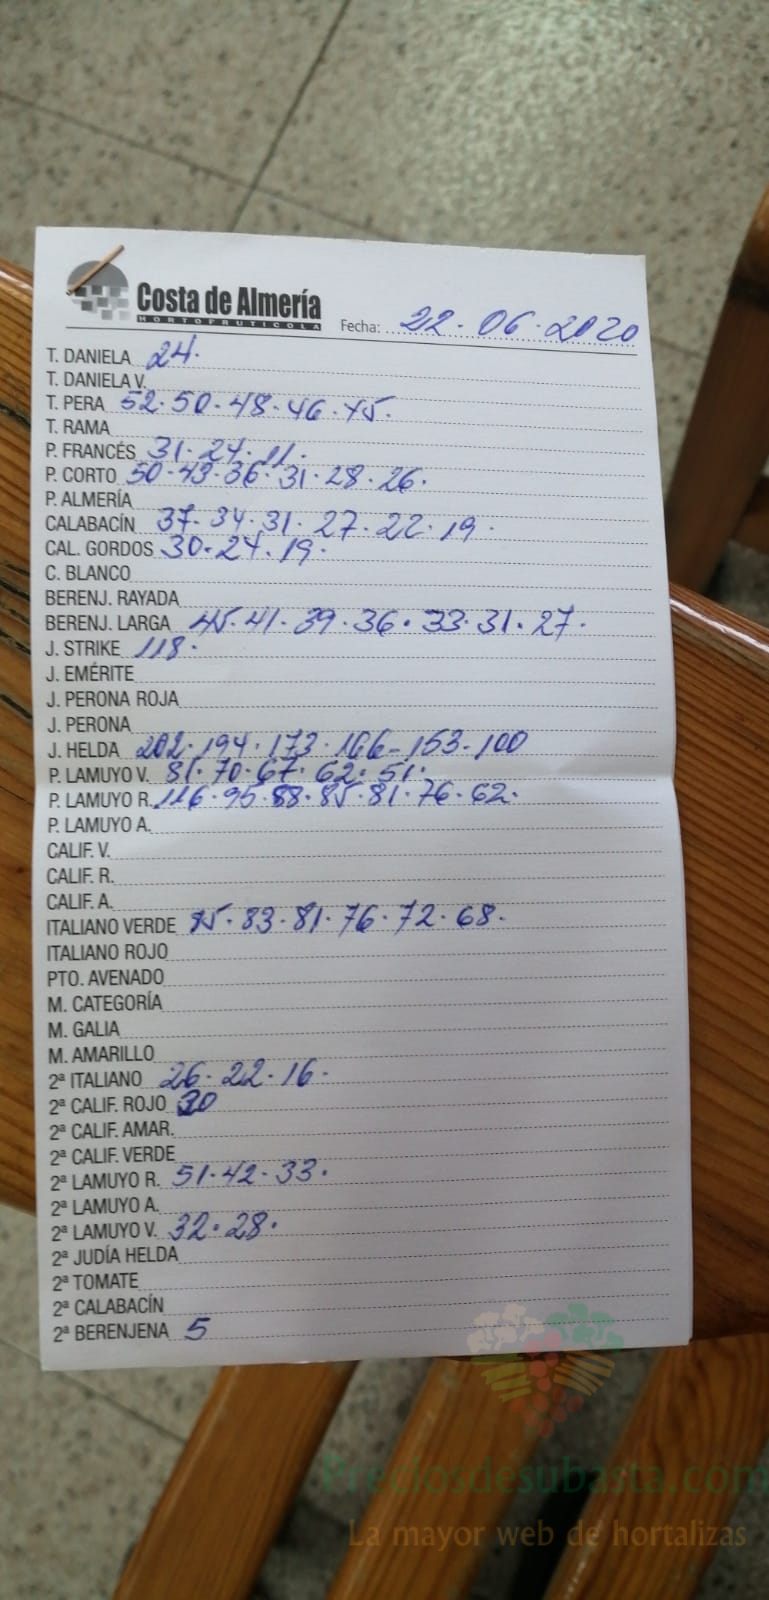 Costa de Almería
HORTOFRUTICOLA
Fecha: 22.06.2020
T. DANIELA 24.
T. DANIELA V.
T. PERA 52.50.48.46.45.
T. RAMA
P. FRANCÉS 31.27.11.
P. CORTO 50.43.36.31.28.26.
P. ALMERÍA
CALABACÍN 37.34.31.27.22.19.
CAL. GORDOS 30.24.19.
C. BLANCO
BERENJ. RAYADA
BERENJ. LARGA 45.41.39.36.33.31.27.
J. STRIKE 118.
J. EMÉRITE
J. PERONA ROJA
J. PERONA
J. HELDA 202.194.173.166-153-100
P. LAMUYO V. 81.70.67.62.51.
P. LAMUYO R. 116.95.88.85.81.76.62.
P. LAMUYO A.
CALIF. V.
CALIF. R.
CALIF. A.
ITALIANO VERDE 85.83.81.76.72.68.
ITALIANO ROJO
PTO. AVENADO
M. CATEGORÍA
M. GALIA
M. AMARILLO
2ª ITALIANO 26.22.16.
2ª CALIF. ROJO 30
2ª CALIF. AMAR.
2ª CALIF. VERDE
2ª LAMUYO R. 51.42.33.
2ª LAMUYO A.
2ª LAMUYO V. 32.28.
2ª JUDÍA HELDA
2ª TOMATE
2ª CALABACÍN
2ª BERENJENA 5
Preciosdesubasta.com
La mayor web de hortalizas